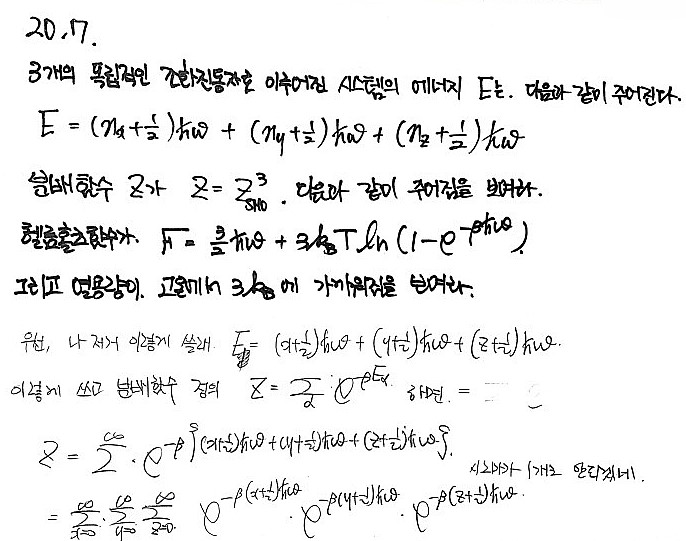 20.7.
3개의 독립적인 조화진동자로 이루어진 시스템의 에너지 E는. 다음과 같이 주어진다.
E = (n_x+1/2)ℏω + (n_y+1/2)ℏω + (n_z+1/2)ℏω
분배함수 Z가 Z = Z_SHO^3. 다음과 같이 주어짐을 보여라.
헬름홀츠함수가. F = 3/2 ℏω + 3k_B T ln (1-e^{-βℏω}).
그리고 열용량이. 고온에서 3k_B에 가까워짐을 보여라.
우선, 나 저거 이렇게 쓸래. E = (x+1/2)ℏω + (y+1/2)ℏω + (z+1/2)ℏω.
이렇게 쓰고 분배함수 정의 Z = Σ_α e^{-βE_α} 하면. =
Z = Σ^∞ · e^{-β{(x+1/2)ℏω + (y+1/2)ℏω + (z+1/2)ℏω}}.
시그마가 1개로 안되겠네.
= Σ_{x=0}^∞ · Σ_{y=0}^∞ Σ_{z=0}^∞ e^{-β(x+1/2)ℏω} · e^{-β(y+1/2)ℏω} · e^{-β(z+1/2)ℏω}.